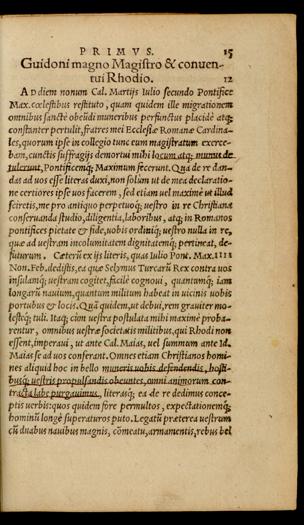 PRIMVS. 15
Guidoni magno Magistro & conuen-
tui Rhodio. 12
AD diem nonum Cal. Martijs Iulio secundo Pontifice
Max. cœlestibus restituto, quam quidem ille migrationem
omnibus sanctè obeũdi muneribus perfunctus placidè atq;
constanter pertulit, fratres mei Ecclesiæ Romanæ Cardina-
les, quorum ipse in collegio tunc eum magistratum exerce-
bam, cunctis suffragijs demortui mihi locum atq; munus de-
tulerunt, Pontificemq; Maximum fecerunt. Qua de re dan-
das ad uos esse literas duxi, non solùm ut de mea declaratio-
ne certiores ipse uos facerem, sed etiam uel maximè ut illud
sciretis, me pro antiquo perpetuoq; uestro in re Christiana
conseruanda studio, diligentia, laboribus, atq; in Romanos
pontifices pietate & fide, uobis ordiniq; uestro nulla in re,
quæ ad uestram incolumitatem dignitatemq; pertineat, de-
futurum. Cæterũ ex ijs literis, quas Iulio Pont. Max. IIII
Non. Feb. dedistis, ea quæ Selymus Turcarũ Rex contra uos
insulamq; uestram cogitet, facilè cognoui, quantumq; iam
longarũ nauium, quantum militum habeat in uicinis uobis
portubus & locis. Quã quidem, ut debui, rem grauiter mo-
lestéq; tuli. Itaq; cùm uestra postulata mihi maximè proba-
rentur, omnibus uestræ societatis militibus, qui Rhodi non
essent, imperaui, ut ante Cal. Maias, uel summum ante Id.
Maias se ad uos conferant. Omnes etiam Christianos homi-
nes aliquid hoc in bello muneris uobis defendendis, hosti-
busq; uestris propulsandis obeuntes, omni animorum con-
tracta labe purgauimus, literasq; ea de re dedimus conce-
ptis uerbis: quos quidem fore permultos, expectationemq;
hominũ longè superaturos puto. Legatũ præterea uestrum
cũ duabus nauibus magnis, cõmeatu, armamentis, rebus bel